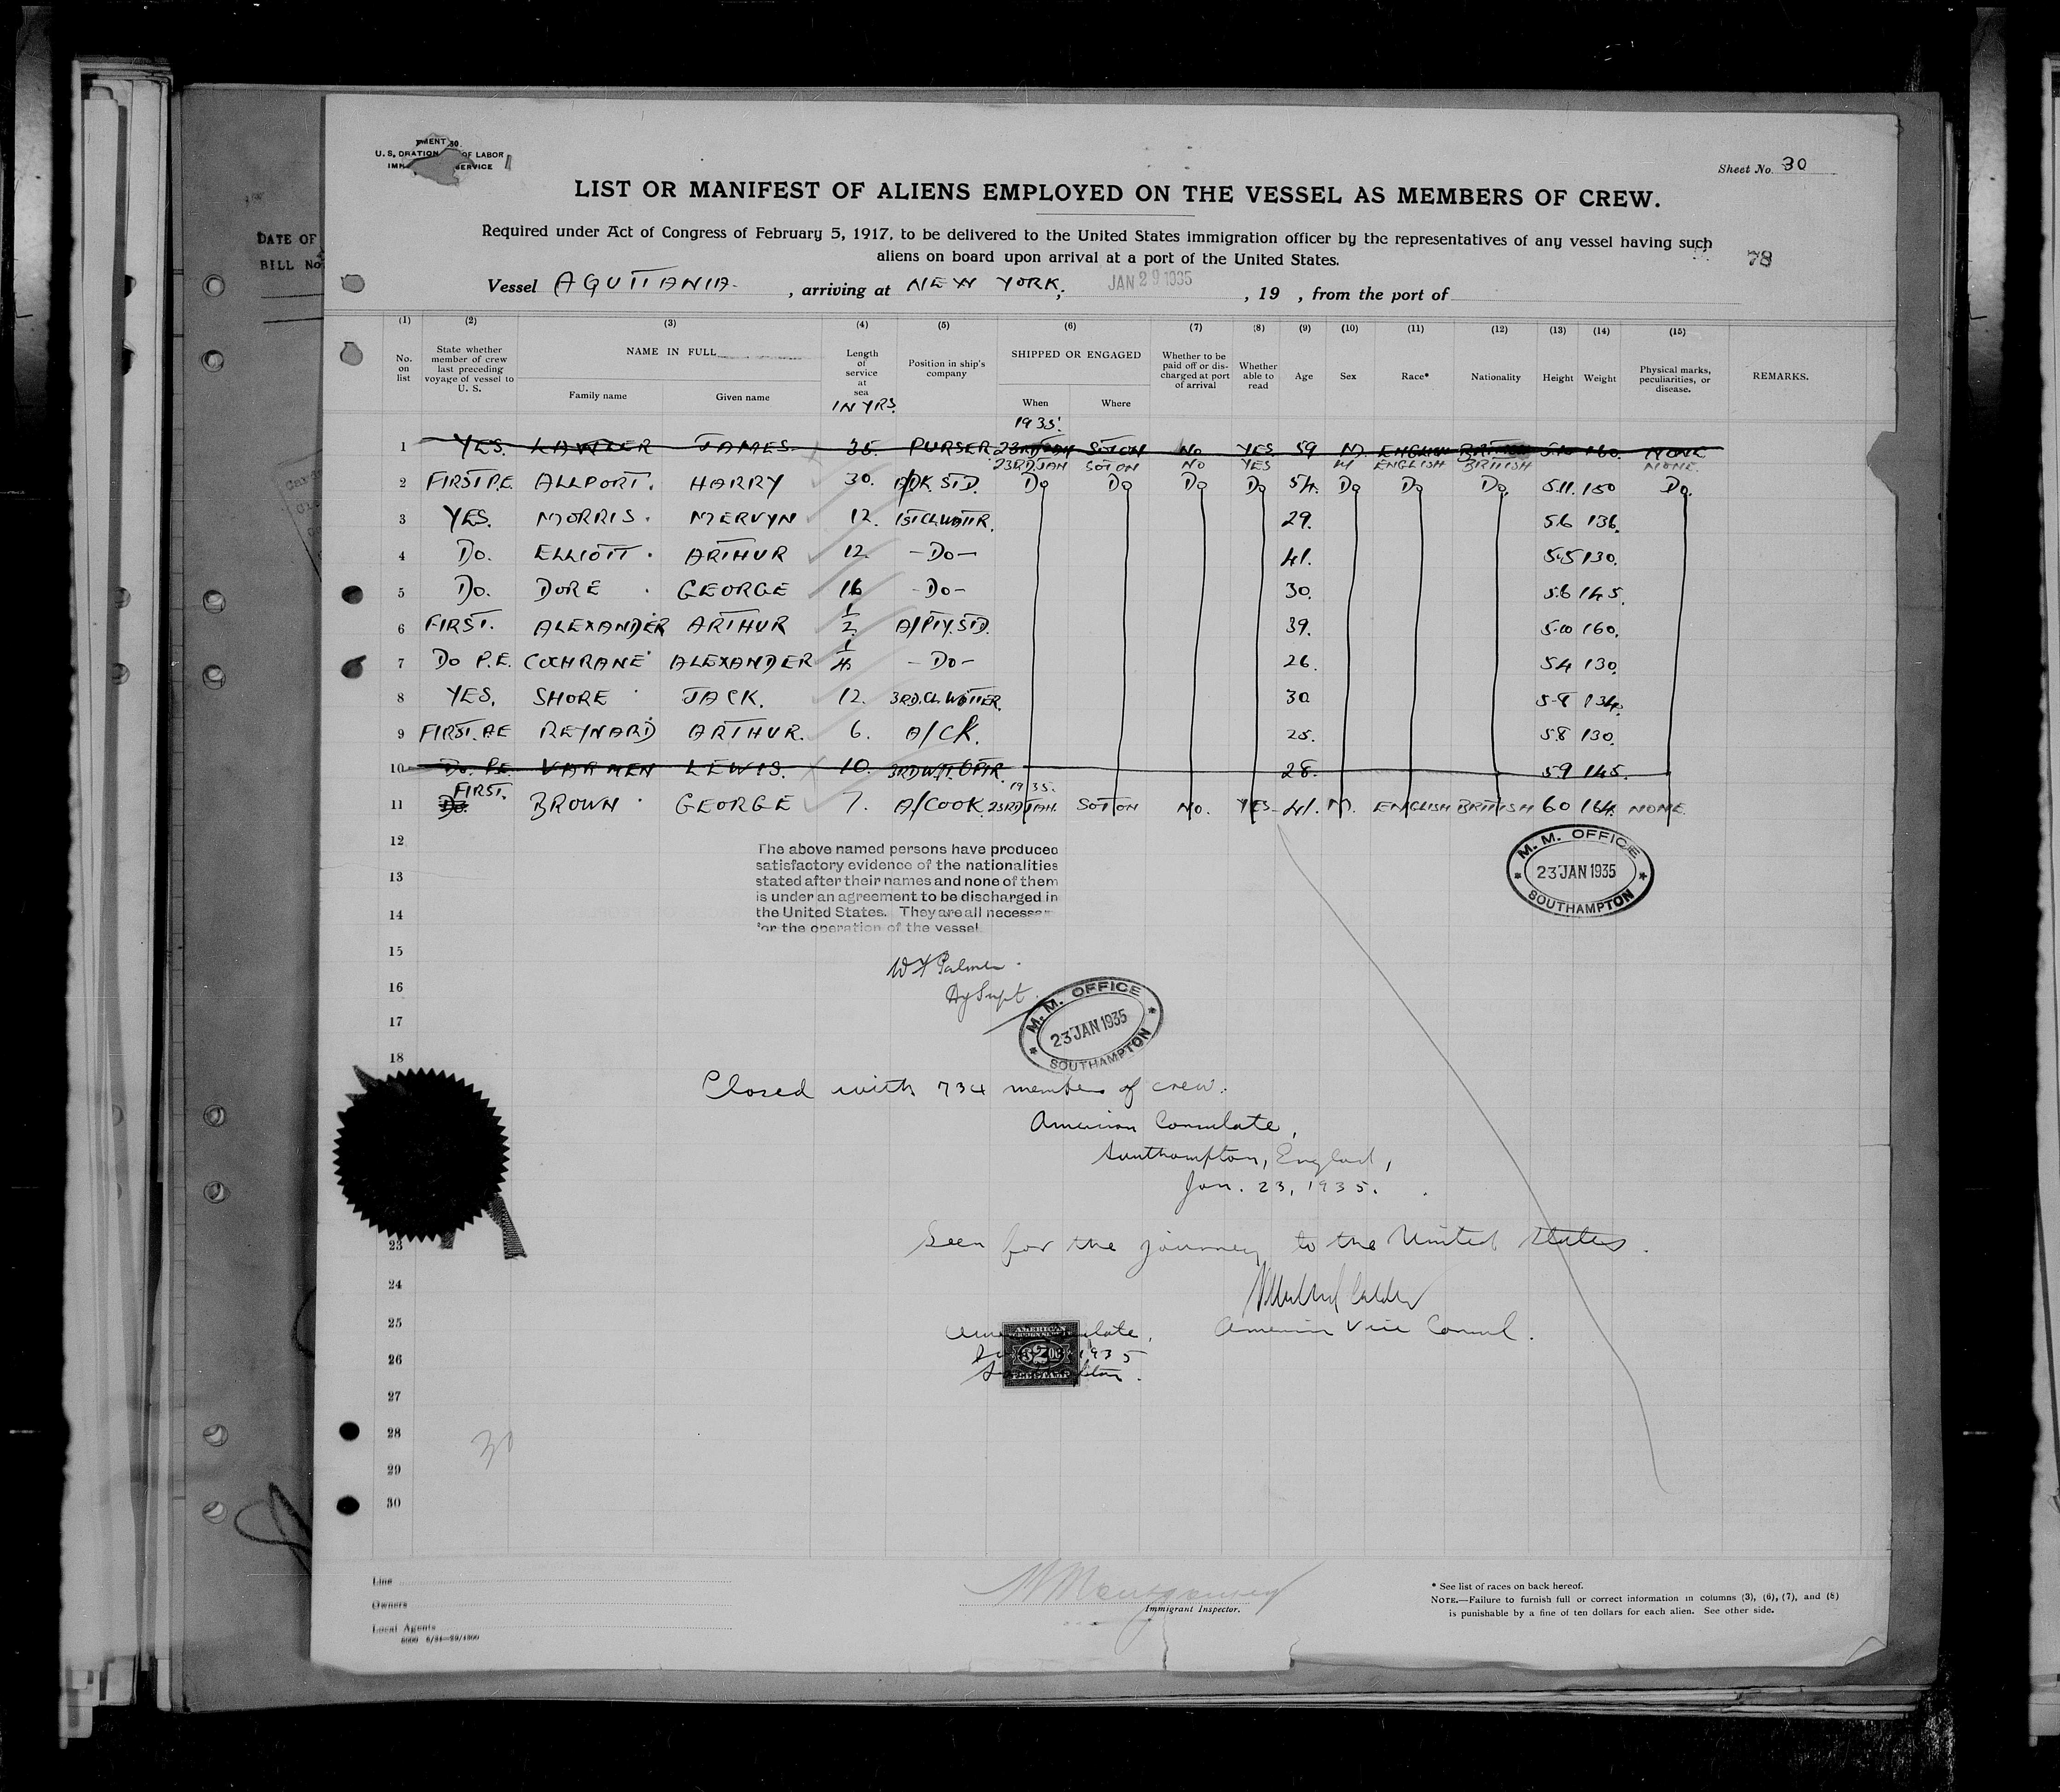 DATE OF
BILL No
MENT 30.
U. S. DRATION OF LABOR
SERVICE
Sheet No. 30
LIST OR MANIFEST OF ALIENS EMPLOYED ON THE VESSEL AS MEMBERS OF CREW.
Required under Act of Congress of February 5, 1917, to be delivered to the United States immigration officer by the representatives of any vessel having such
aliens on board upon arrival at a port of the United States.
78
Vessel AQUITANIA , arriving at NEW YORK; JAN 29 1935 , 19 , from the port of
(1) (2) (3) (4) (5) (6) (7) (8) (9) (10) (11) (12) (13) (14) (15)
No. on list State whether member of crew last preceding voyage of vessel to U. S. NAME IN FULL Family name Given name Length of service at sea IN YRS. Position in ship's company SHIPPED OR ENGAGED When Where Whether to be paid off or discharged at port of arrival Whether able to read Age Sex Race* Nationality Height Weight Physical marks, peculiarities, or disease. REMARKS.
1935.
1 YES. LAWLER JAMES 35. PURSER 23RD JAN SOTON No YES 59 M. ENGLISH BRITISH 5.10 160. NONE
23RD JAN SOTON NO YES M ENGLISH BRITISH NONE.
2 FIRST P.E. ALLPORT. HARRY 30. A/DK. STD. Do Do Do Do 54. Do Do Do. 5.11. 150 Do.
3 YES. MORRIS. MERVYN 12. 1ST CL WAITR. 29. 5.6 136.
4 Do. ELLIOTT. ARTHUR 12. -Do- 41. 5.5 130.
5 Do. DORE. GEORGE 16 -Do- 30. 5.6 145.
6 FIRST. ALEXANDER ARTHUR 1/2 A/PTY. STD. 39. 5.10 160.
7 Do P.E. COCHRANE ALEXANDER 1/4. -Do- 26. 5.4 130.
8 YES, SHORE JACK. 12. 3RD. CL. WAITER. 30 5.8 134.
9 FIRST. RE REYNARD ARTHUR. 6. A/CK. 25. 5.8 130.
10 Do. P.E. VARMEN LEWIS. 10. 3RD WT. OPTR. 28. 5.9 145.
FIRST. 1935.
11 Do. BROWN. GEORGE 7. A/COOK. 23RD JAN. SOTON No. YES 41. M. ENGLISH BRITISH 6.0 164. NONE.
12
M. M. OFFICE
23 JAN 1935
SOUTHAMPTON
The above named persons have produced
satisfactory evidence of the nationalities
13
stated after their names and none of them
is under an agreement to be discharged in
14
the United States. They are all necessary
for the operation of the vessel
15
W Palmer.
16
Dy Supt.
17
M. M. OFFICE
23 JAN 1935
SOUTHAMPTON
18
Closed with 734 members of crew.
American Consulate,
Southampton, England,
Jan. 23, 1935.
23
Seen for the journey to the United States.
24
25
American Vice Consul.
AMERICAN
26
1935
FEE STAMP
27
28
30
29
30
Line
Owners
Local Agents
Immigrant Inspector.
* See list of races on back hereof.
NOTE.—Failure to furnish full or correct information in columns (3), (6), (7), and (8)
is punishable by a fine of ten dollars for each alien. See other side.